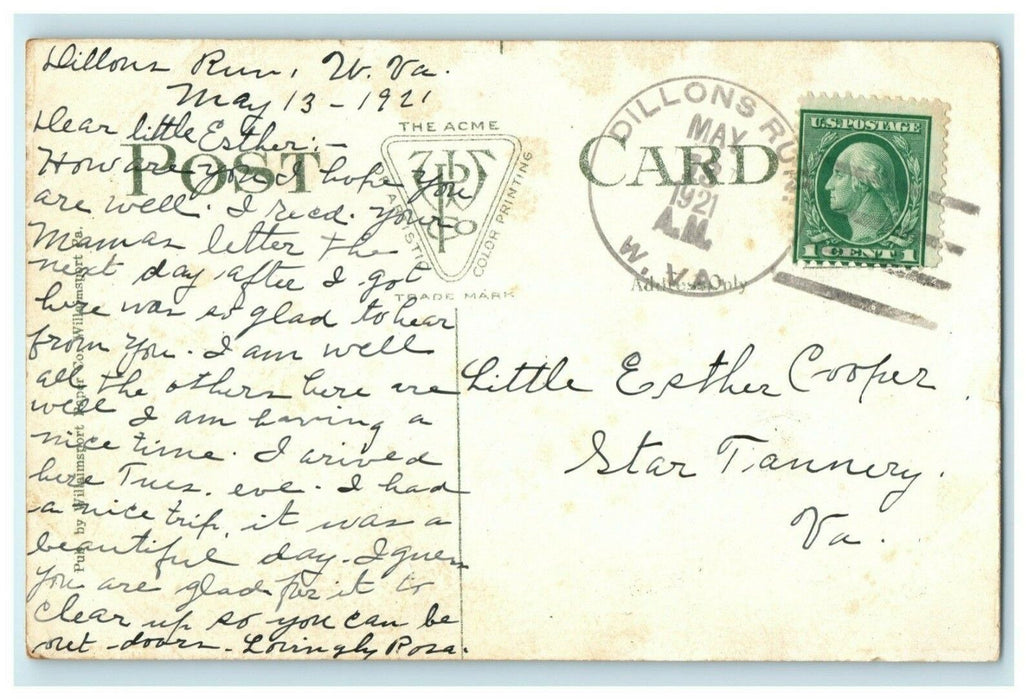 Dillons Run, W. Va.
May 13 - 1921
Dear little Esther: -
How are you I hope you
are well. I recd. your
Mamas letter the
next day after I got
here was so glad to hear
from you. I am well
all the others here are
well I am having a
nice time. I arived
here Tues. eve. I had
a nice trip, it was a
beautiful day. I guess
you are glad for it to
clear up so you can be
out-doors. Lovingly Rosa.
POST CARD
THE ACME
OF ARTISTIC
COLOR PRINTING
TRADE MARK
Pub. by Williamsport Paper Co. Williamsport Pa.
DILLONS RUN.
MAY
13
1921
A.M.
W. VA.
U.S. POSTAGE
1 CENT 1
Address Only
Little Esther Cooper
Star Tannery.
Va.